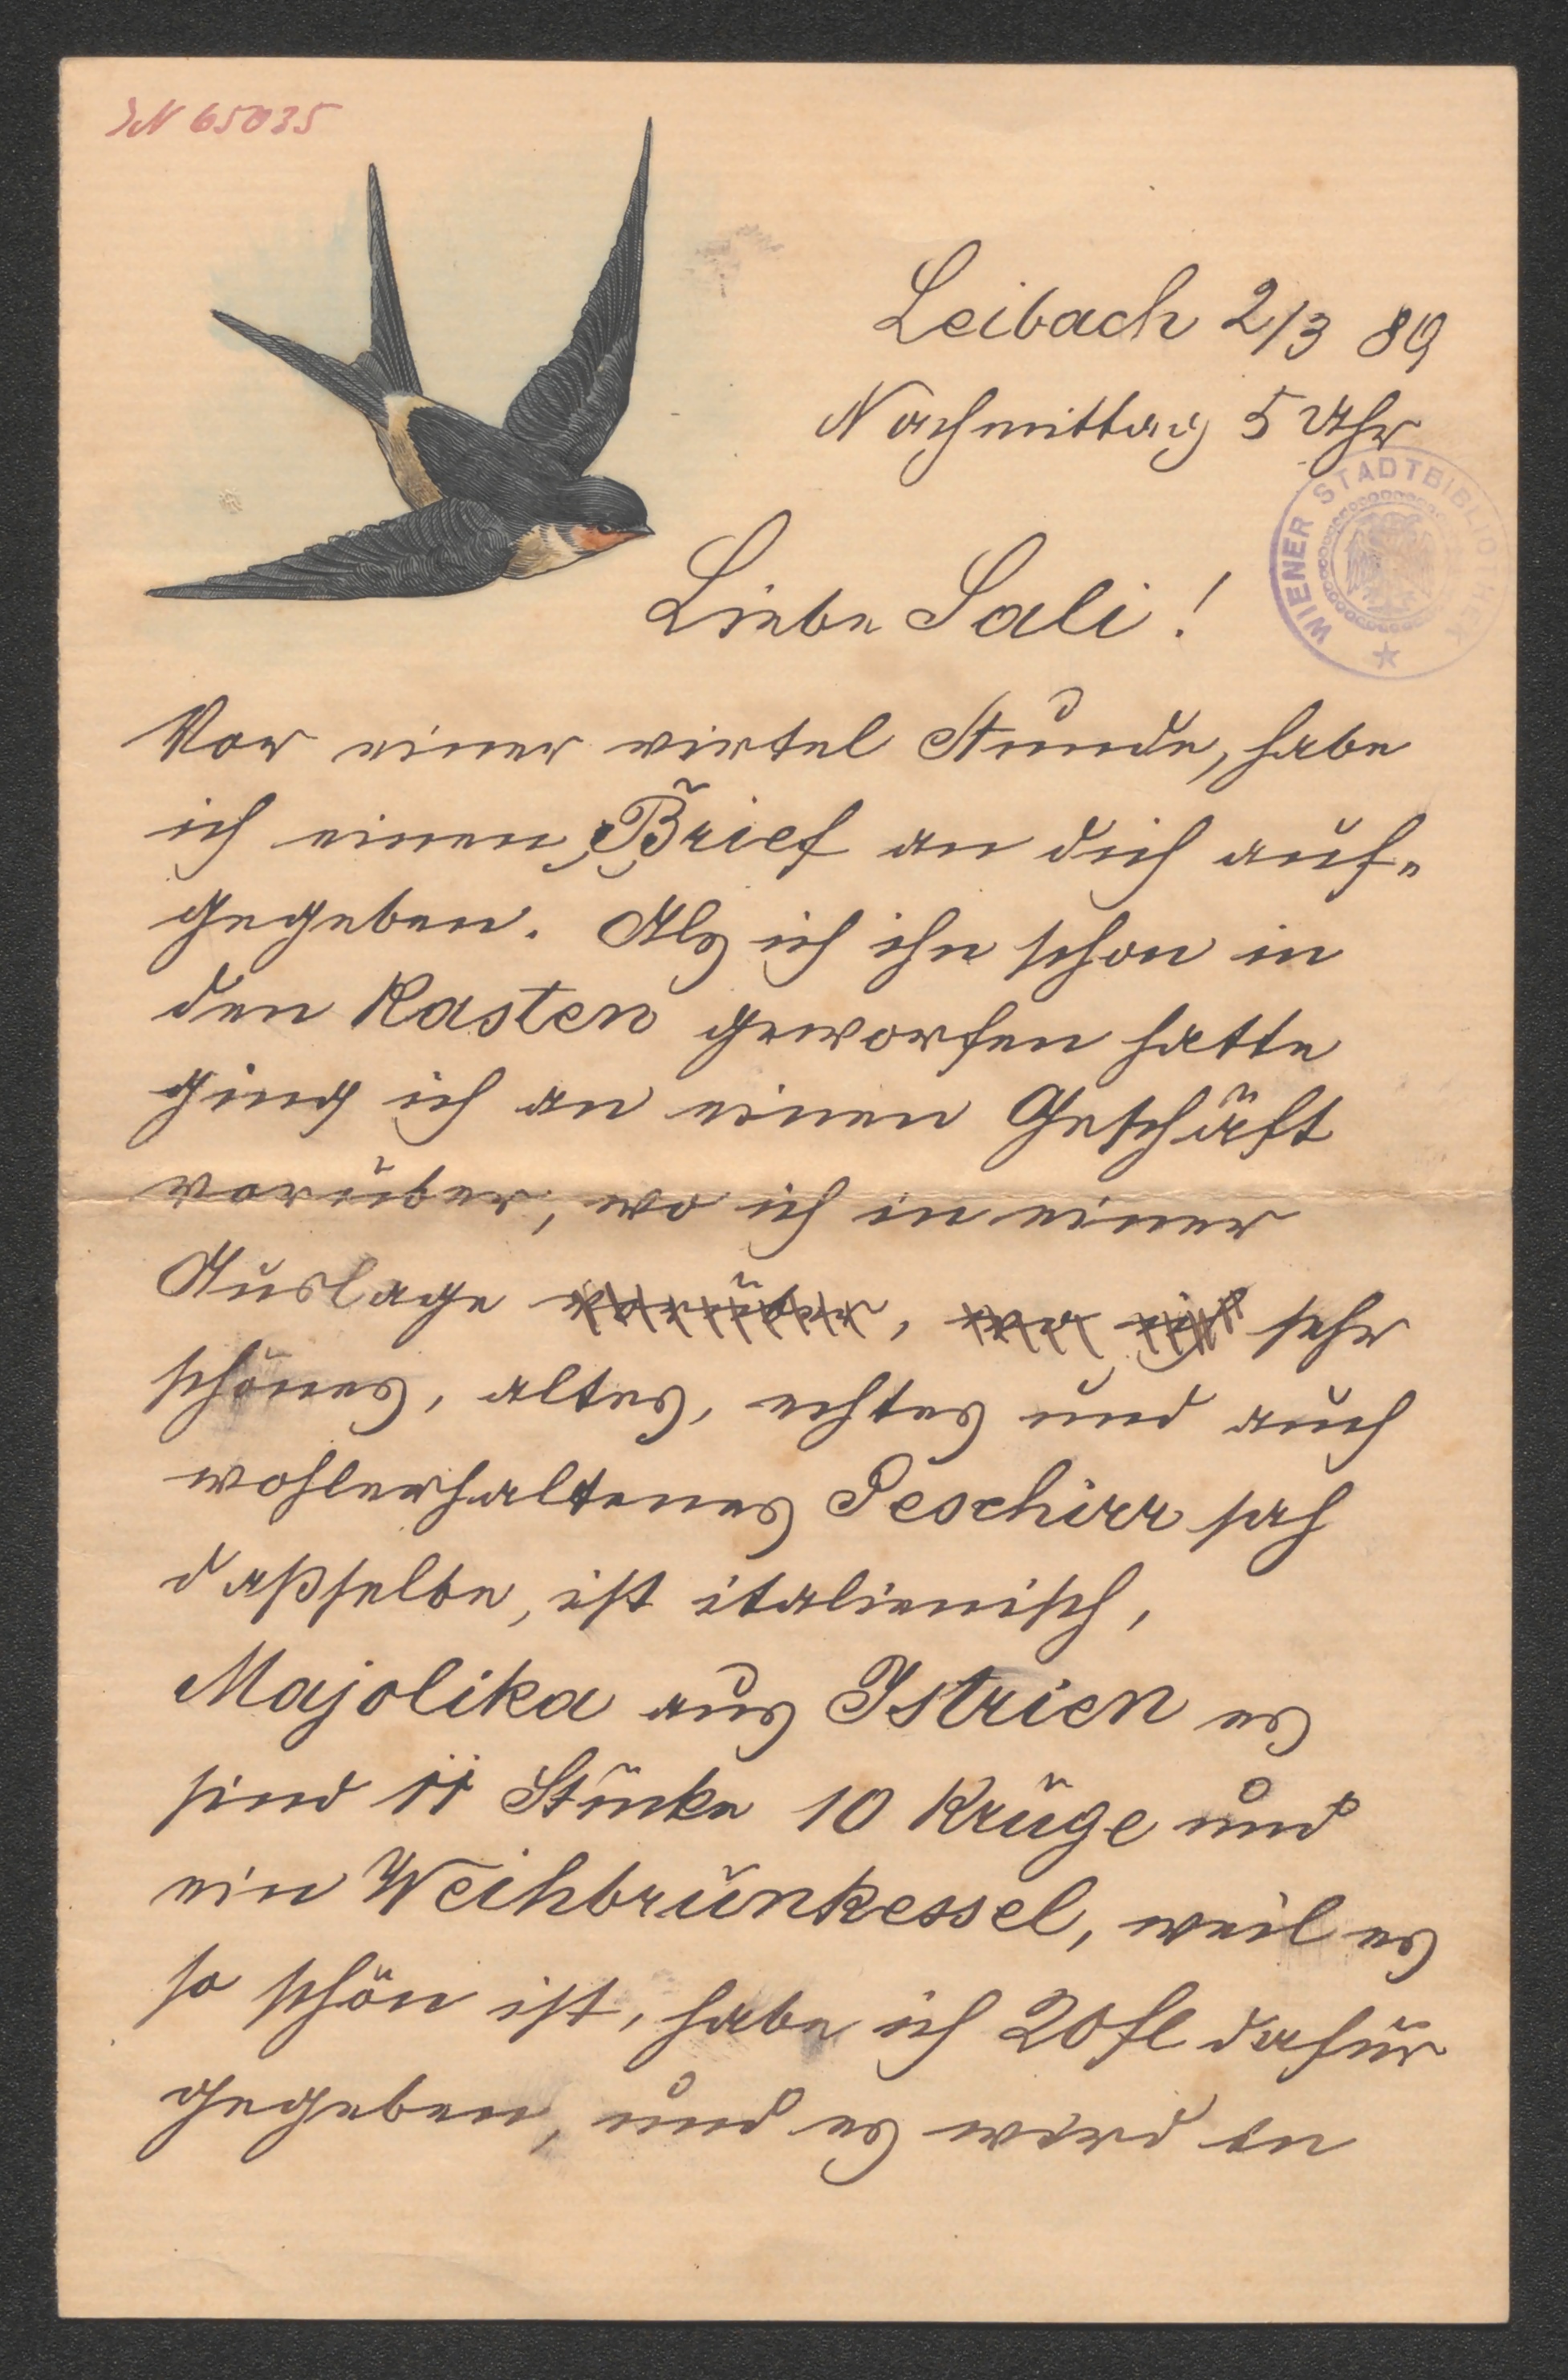 IN 65035
Leibach 2/3 89
Nachmittag 5 Uhr
WIENER STADTBIBLIOTHEK
Liebe Sali!
Vor einer virtel Stunde, habe
ich einen Brief an dich auf=
gegeben. Als ich ihn schon in
den Kasten geworfen hatte
ging ich an einen Geschäft
vorüber, wo ich in einer
Auslage vorüber, wo ich sehr
schönes, altes, echtes und auch
wohlerhaltenes Geschirr sah
daßselbe, ist italienisch,
Majolika aus Istrien es
sind 11 Stücke 10 Krüge und
ein Weihbrunkessel, weil es
so schön ist, habe ich 20 fl dafür
gegeben, und es wird in